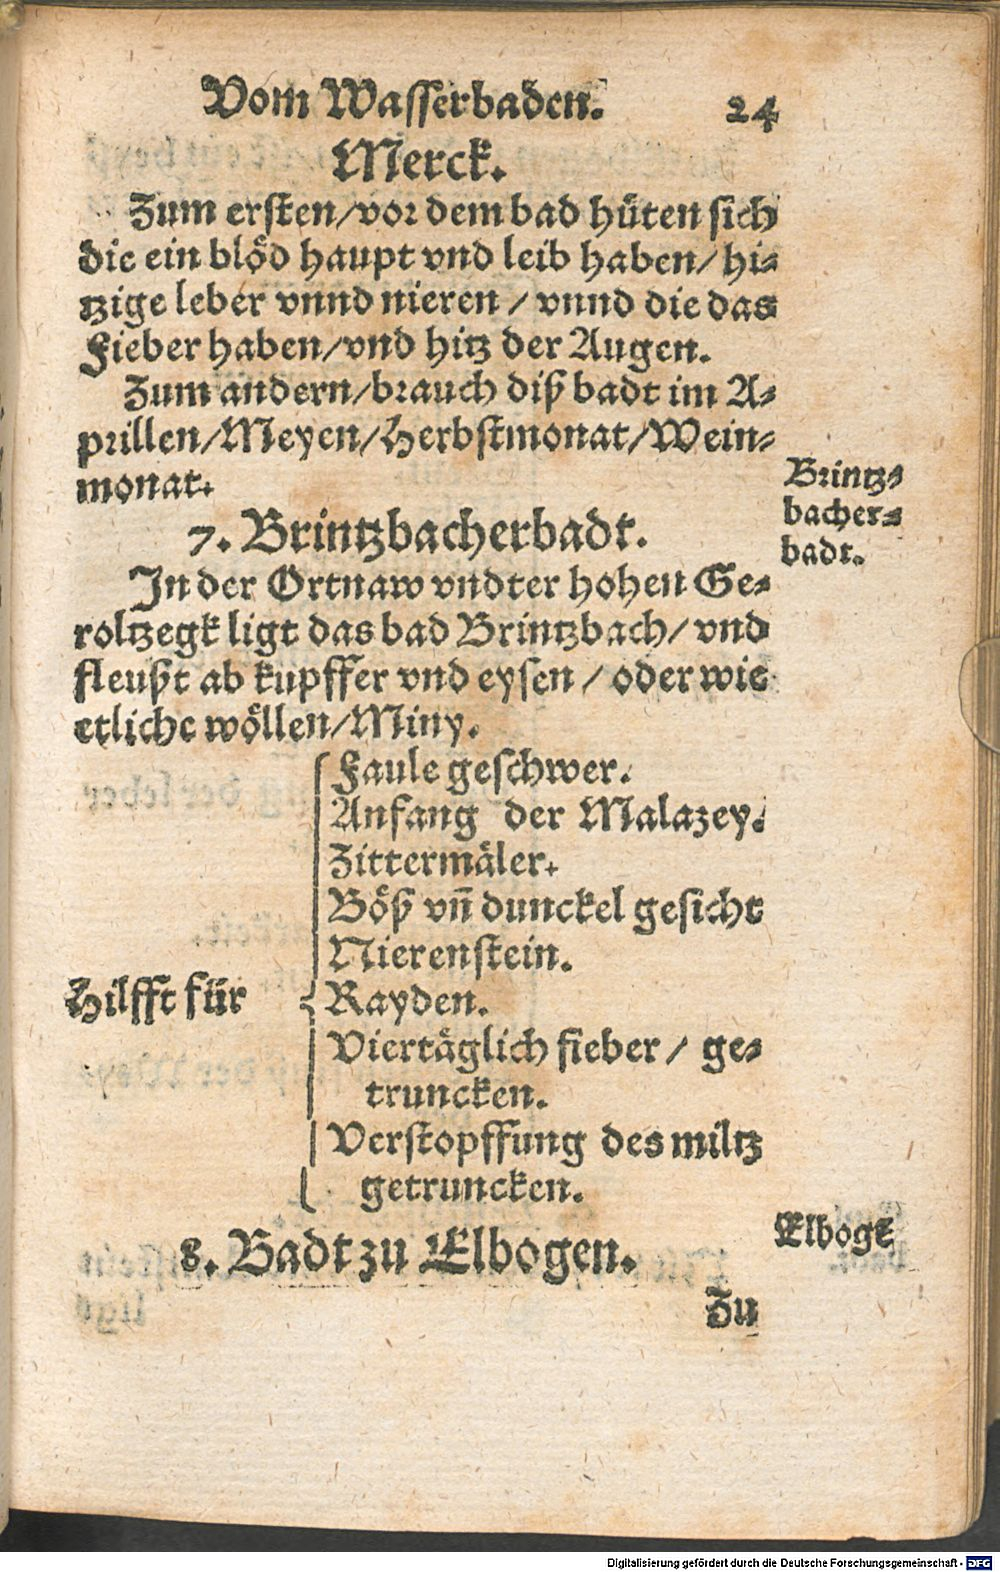 Vom Wasserbaden. 24
Merck.
Zum ersten/vor dem bad hüten sich
die ein blöd haupt vnd leib haben/hi-
tzige leber vnnd nieren / vnnd die das
Fieber haben/vnd hitz der Augen.
Zum andern/brauch diß badt im A-
prillen/Meyen/Herbstmonat/Wein-
monat.
Brintz-
bacher-
badt.
7. Brintzbacherbadt.
In der Ortnaw vndter hohen Ge-
roltzegk ligt das bad Brintzbach/ vnd
fleußt ab kupffer vnd eysen / oder wie
etliche wöllen/Miny.
Hilfft für
Faule geschwer.
Anfang der Malazey.
Zittermäler.
Böß vñ dunckel gesicht
Nierenstein.
Rayden.
Viertäglich fieber / ge-
truncken.
Verstopffung des miltz
getruncken.
8. Badt zu Elbogen.
Elbogē
Zu
Digitalisierung gefördert durch die Deutsche Forschungsgemeinschaft - DFG